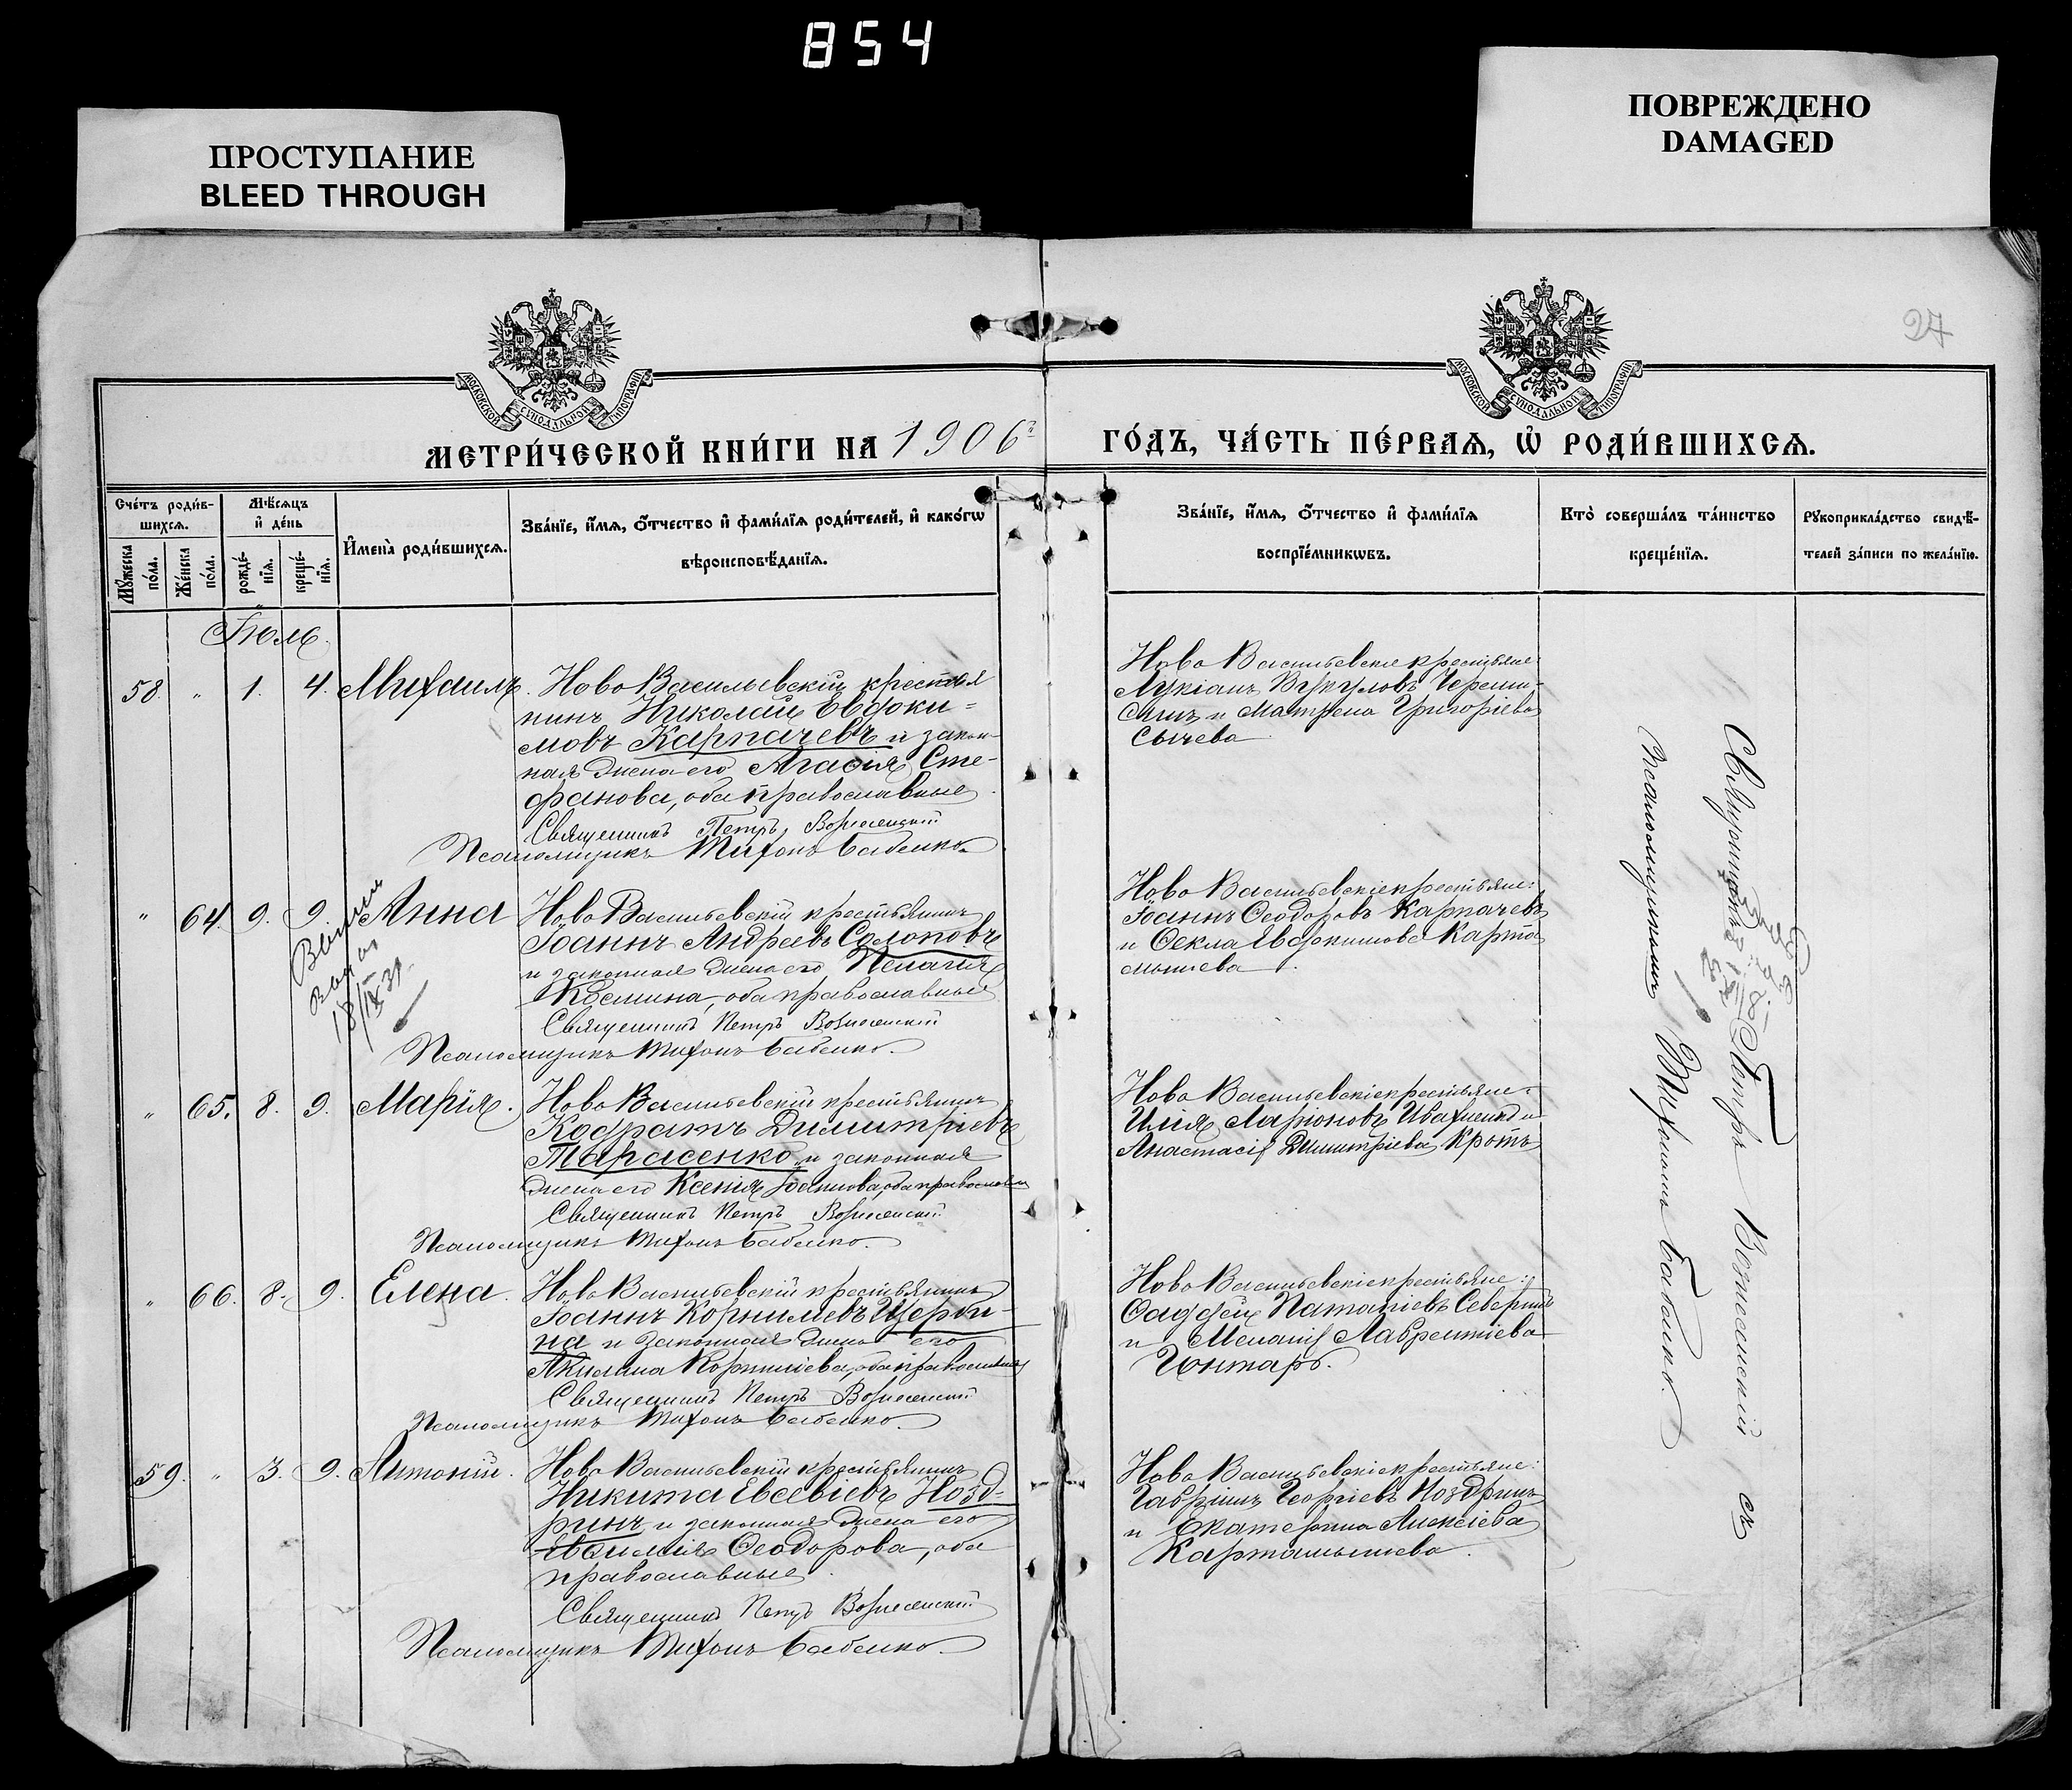 854
ПРОСТУПАНИЕ
BLEED THROUGH
ПОВРЕЖДЕНО
DAMAGED
27
МОСКОВСКОЙ СѴНОДАЛЬНОЙ ТИПОГРАФІИ
МОСКОВСКОЙ СѴНОДАЛЬНОЙ ТИПОГРАФІИ
МЕТРИ́ЧЕСКОЙ КНИ́ГИ НА 1906 г
ГО́ДЪ, ЧА́СТЬ ПЕ́РВАѦ, Ѽ РОДИ́ВШИХСѦ.
Сче́тъ роди́в-
шихсѧ.
Мѣ́сѧцъ
и҆ де́нь
Мꙋ́жеска
по́ла.
Же́нска
по́ла.
рожде́-
нїѧ.
креще́-
нїѧ.
И҆мена̀ роди́вшихсѧ.
Зва́нїе, и҆́мѧ, ѻ҆́тчество и҆ фами́лїѧ роди́телей, и҆ како́гѡ
вѣроисповѣ́данїѧ.
Зва́нїе, и҆́мѧ, ѻ҆́тчество и҆ фами́лїѧ
воспрїе́мникѡвъ.
Кто̀ соверша́лъ та́инство
креще́нїѧ.
Рꙋкоприкла́дство свидѣ́-
телей за́писи по жела́нїю.
Іюль.
58. " 1. 4. Михаилъ.
Ново Васильевскій крестья
нинъ Николай Евдоки=
мовъ Карпачевъ и закон
ная жена его Агафія Сте-
фанова, оба православные
Священникъ Петръ Вознесенскій
Псаломщикъ Тихонъ Бабенко.
Ново Васильевскіе крестьяне:
Лукіанъ Вукуловъ
и Матрена Григоріева
Сычева
" 64. 9. 9. Анна
18/IX 31
Ново Васильевскій крестьянинъ
Іоаннъ Андреевъ Солоповъ
и законная жена его Пелагія
Космина, оба православные
Священникъ Петръ Вознесенскій
Псаломщикъ Тихонъ Бабенко.
Ново Васильевскіе крестьяне:
Іоаннъ Ѳеодоровъ Карпачевъ
и Ѳекла Евдокимова Карта
мышева.
" 65. 8. 9. Марія.
Ново Васильевскій крестьянинъ
Кодратъ Димитріевъ
Тарасенко и законная
жена его Ксенія Іоаннова, оба православн
Священникъ Петръ Вознесенскій
Псаломщикъ Тихонъ Бабенко.
Ново Васильевскіе крестьяне:
Илія Ларіоновъ Ивахненко и
Анастасія Димитріева Кротъ
" 66. 8. 9. Елена.
Ново Васильевскій крестьянинъ
Іоаннъ Корниліевъ Щерби-
на и законная жена его
Акилина Корниліева, оба православные
Священникъ Петръ Вознесенскій
Псаломщикъ Тихонъ Бабенко.
Ново Васильевскіе крестьяне:
Ѳаддей Потапіевъ Северинъ
и Меланія Лаврентіева
Гонтарь.
59. " 3. 9. Антоній.
Ново Васильевскій крестьянинъ
Никита Евсевіевъ Позд-
ринъ и законная жена его
Евфимія Ѳеодорова, оба
православные.
Священникъ Петръ Вознесенскій
Псаломщикъ Тихонъ Бабенко.
Ново Васильевскіе крестьяне:
Гавріилъ Георгіевъ Ноздринъ
и Екатерина Алексіева
Картамышева.
Священникъ Петръ Вознесенскій съ
Псаломщикомъ Тихономъ Бабенко.